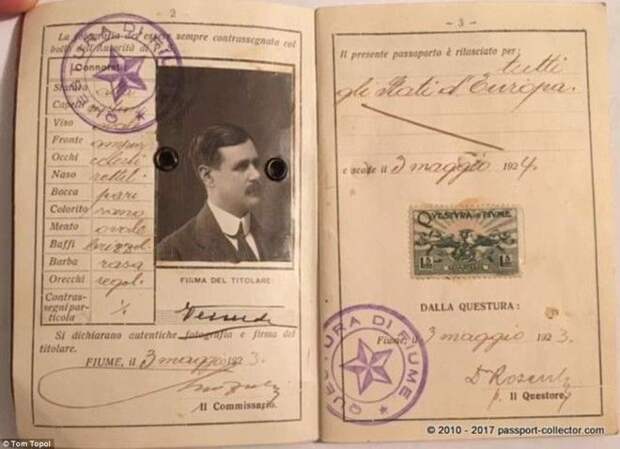 2
La fotografia dev'essere sempre contrassegnata col
bollo dell'Autorità di
QUESTURA DI FIUME
Connotati
Statura
Capelli
Viso
Fronte ampia
Occhi celesti
Naso rettil.
Bocca pari
Colorito sano
Mento ovale
Baffi brizzol.
Barba rasa
Orecchi regol.
Contras-
segni par-
ticola
FIRMA DEL TITOLARE:
Si dichiarano autentiche fotografia e firma del
titolare.
FIUME, il 3 maggio 1923.
Il Commissario.
- 3 -
Il presente passaporto è rilasciato per: tutti
gli Stati d'Europa.
e scade il 3 maggio 1924.
QUESTURA DI FIUME
DALLA QUESTURA:
Fiume, 3 maggio 1923
QUESTURA DI FIUME
p. Il Questore.
© Tom Topol
© 2010 - 2017 passport-collector.com